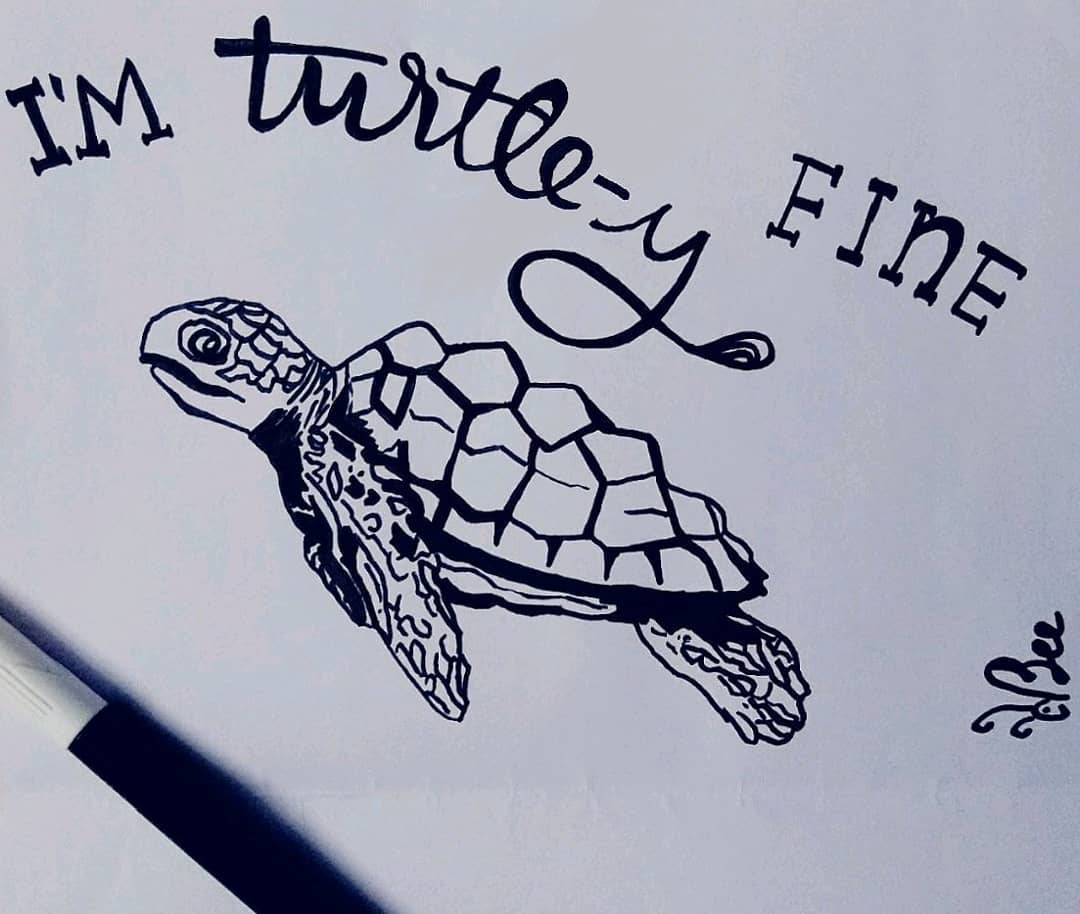 I'M turtle-y FINE
Bee